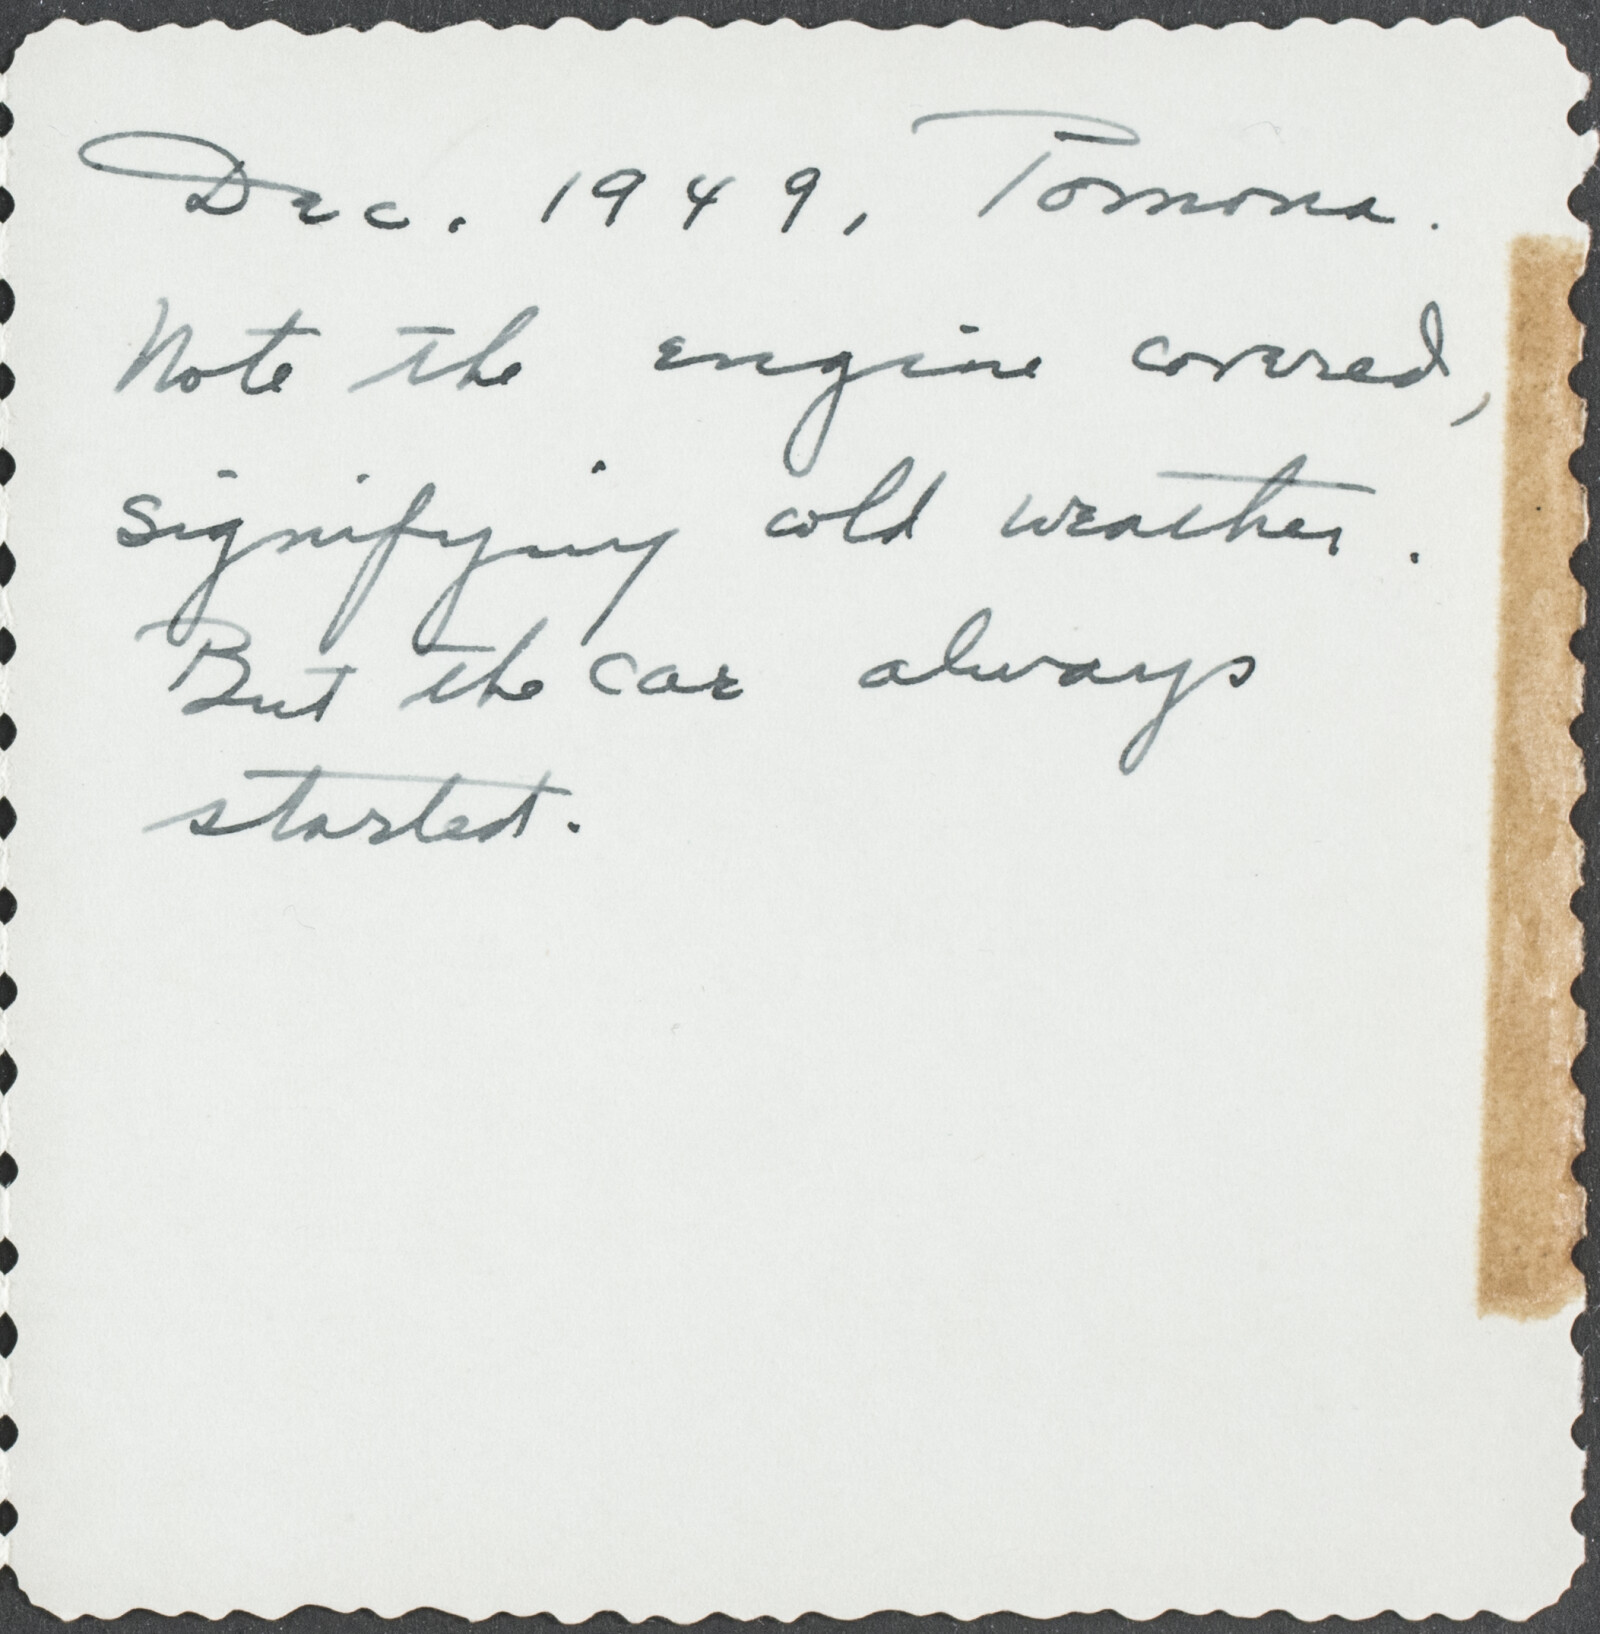 Dec. 1949, Pomona.
Note the engine covered,
signifying cold weather.
But the car always
started.